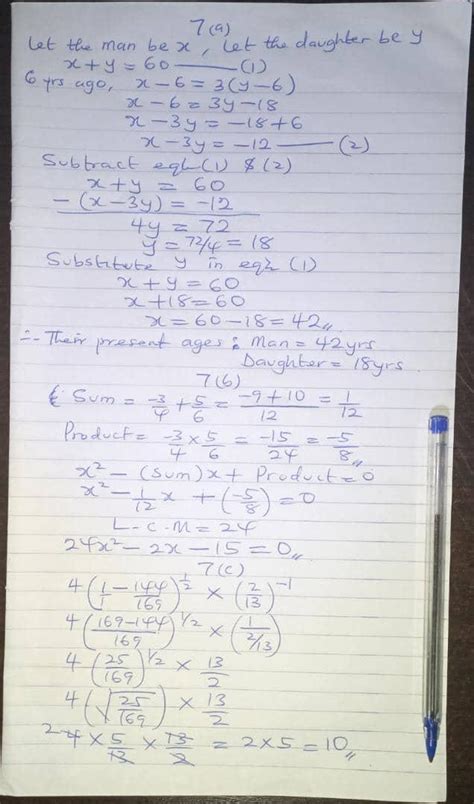 7(a)
Let the man be x, Let the daughter be y
x + y = 60 —— (1)
6 yrs ago, x - 6 = 3(y - 6)
x - 6 = 3y - 18
x - 3y = -18 + 6
x - 3y = -12 —— (2)
Subtract eqn (1) & (2)
x + y = 60
- (x - 3y) = -12
4y = 72
y = 72/4 = 18
Substitute y in eqn (1)
x + y = 60
x + 18 = 60
x = 60 - 18 = 42,,
∴ Their present ages: Man = 42yrs
Daughter = 18yrs.
7(b)
Sum = -3/4 + 5/6 = (-9 + 10)/12 = 1/12
Product = -3/4 × 5/6 = -15/24 = -5/8,,
x² - (Sum)x + Product = 0
x² - 1/12 x + (-5/8) = 0
L-C-M = 24
24x² - 2x - 15 = 0,,
7(c)
4(1/1 - 144/169)^1/2 × (2/13)^-1
4((169-144)/169)^1/2 × (1/(2/13))
4(25/169)^1/2 × 13/2
4(√(25/169)) × 13/2
2 4 × 5/13 × 13/2 = 2 × 5 = 10,,